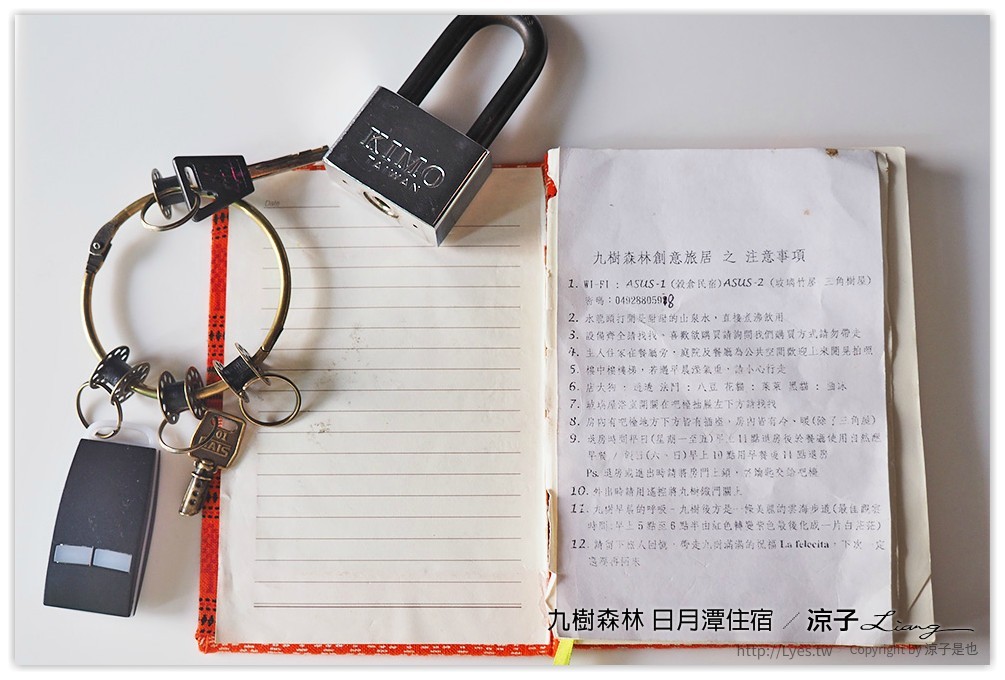 KIMO
TAIWAN
Date
九樹森林創意旅居 之 注意事項
1. WI-FI : ASUS-1 (穀倉民宿) ASUS-2 (玻璃竹屋 三角樹屋)
密碼：04928805
2. 水龍頭打開是甜甜的山泉水，直接煮沸飲用
3. 設備齊全請找找、喜歡欲購買請詢問我們購買方式請勿帶走
4. 主人住家在餐廳旁，庭院及餐廳為公共空間歡迎上來閒晃拍照
5. 樓中樓樓梯，若遇早晨溼氣重，請小心行走
6. 店大狗 法鬥：八豆 花貓：茉萊 黑貓：
7. 玻璃屋浴室開關在吧檯地板左下方請找找
8. 房內有吧檯地方下方皆有插座，房內皆有冷、暖(除了三角屋)
9. 退房時間平日(星期一至五)早上11點退房後於餐廳使用自然醒
早餐 / 假日(六、日)早上10點用早餐後11點退房
Ps. 退房或進出時請將房門上鎖，
10. 外出時請用遙控將九樹鐵門關上
11. 九樹早晨的呼吸－九樹後方是一條美麗的雲海步道(最佳觀賞
時間:早上5點至6點半由紅色轉變紫色最後化成一片白茫茫)
12. 請留下旅人回憶，帶走九樹滿滿的祝福 La felecita，下次一定
還要再回來
九樹森林 日月潭住宿 ／涼子 Liang
http://Lyes.tw Copyright by 涼子是也